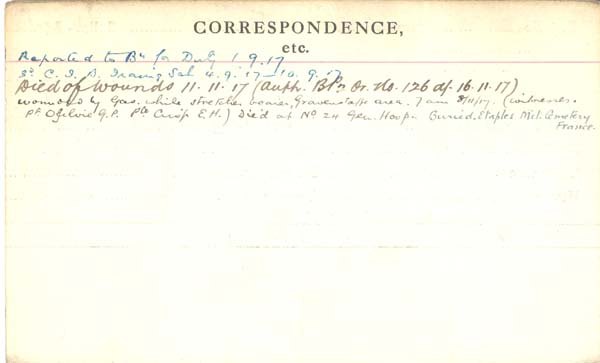 CORRESPONDENCE,
etc.
Reported to Bn for Duty 1.9.17
C. I. B. Training Sch 4.9.17 – 10.9.17
Died of Wounds 11.11.17 (Auth. Bln Or. No. 126 of 16.11.17)
Wounded by Gas, while stretcher bearer, Gravenstafel area. 7am 8/11/17. (witnesses.
Pt Ogilvie G.P. Pte Crisp E.H.) Died at No 24 Gen. Hosp. Buried. Etaples Mil. Cemetery
France.